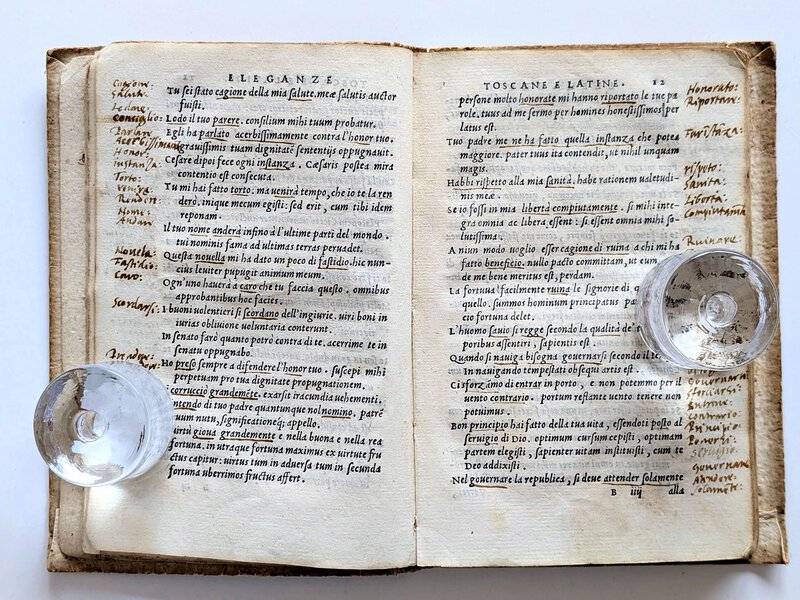 ELEGANZE
Tu sei stato cagione della mia salute. meæ salutis auctor
fuisti.
Lodo il tuo parere. consilium mihi tuum probatur.
Egli ha parlato acerbissimamente contra l'honor tuo.
grauissimis tuam dignitatē sententijs oppugnauit.
Cesare dipoi fece ogni instanza. Cæsaris postea mira
contentio est consecuta.
Tu mi hai fatto torto: ma uenirà tempo, che io te la ren
derò. inique mecum egisti: sed erit, cum tibi idem
reponam.
Il tuo nome anderà infino à l'ultime parti del mondo.
tui nominis fama ad ultimas terras peruadet.
Questa nouella mi ha dato un poco di fastidio. hic nun-
cius leuiter pupugit animum meum.
Ogn'uno hauerà a caro che tu faccia questo. omnibus
approbantibus hoc facies.
I buoni uolentieri si scordano dell'ingiurie. uiri boni in
iurias obliuione uoluntaria conterunt.
In senato farò quanto potrò contra di te. acerrime te in
senatu oppugnabo.
Ho preso sempre a difendere l'honor tuo. suscepi mihi
perpetuam pro tua dignitate propugnationem.
i corrucciò grandemēte. exarsit iracundia uehementi.
ntendo di tuo padre quantunque nol nomino. patrē
uum nutu, significationeq; appello.
uirtù gioua grandemente e nella buona e nella rea
fortuna. in utraque fortuna maximus ex uirtute fru
ctus capitur: uirtus tum in aduersa tum in secunda
fortuna uberrimos fructus affert.
Salute:
Ledare:
Consiglio:
Parlare
Acerbissimam
Honor:
instanza:
Torto:
Venire
Rendere
Nome:
Andare
Nouela:
Fastidio:
Caro:
Scordarsi:
Prendere:
TOSCANE E LATINE. 12
persone molto honorate mi hanno riportato le tue pa
role. tuus ad me sermo per homines honestissimos per
latus est.
Tuo padre me ne ha fatto quella instanza che potea
maggiore. pater tuus ita contendit, ut nihil unquam
magis.
Habbi rispetto alla mia sanità. habe rationem ualetudi
nis meæ.
Se io fossi in mia libertà compiutamente. si mihi inte
gra omnia ac libera essent: si essent omnia mihi so
lutissima.
A niun modo uoglio esser cagione di ruina a chi mi ha
fatto beneficio. nullo pacto committam, ut eum
de me bene meritus est, perdam.
La fortuna facilmente ruina le signorie di
quello. summos hominum principatus
cio fortuna delet.
L'huomo sauio si regge secondo la qualità de'
poribus assentiri, sapientis est.
Quando si nauiga bisogna gouernarsi secondo il
In nauigando tempestati obsequi artis est.
Ci sforzimo di entrar in porto, e non potemmo per il
uento contrario. portum reflante uento tenere non
potuimus.
Bon principio hai fatto della tua uita, essendoti posto al
seruigio di Dio. optimum cursum cepisti, optimam
partem elegisti, sapienter uitam instituisti, cum te
Deo addixisti.
Nel gouernare la republica, si deue attender solamente
B iiij alla
Honorato:
Riportare:
rispeto:
Sanita:
Liberta:
Ruinare:
Gouernarsi
Sforzarsi
Entrare:
Contrario:
Principio:
Poneresi:
Seruisio:
Gouernare
Atendere:
Solaměte: